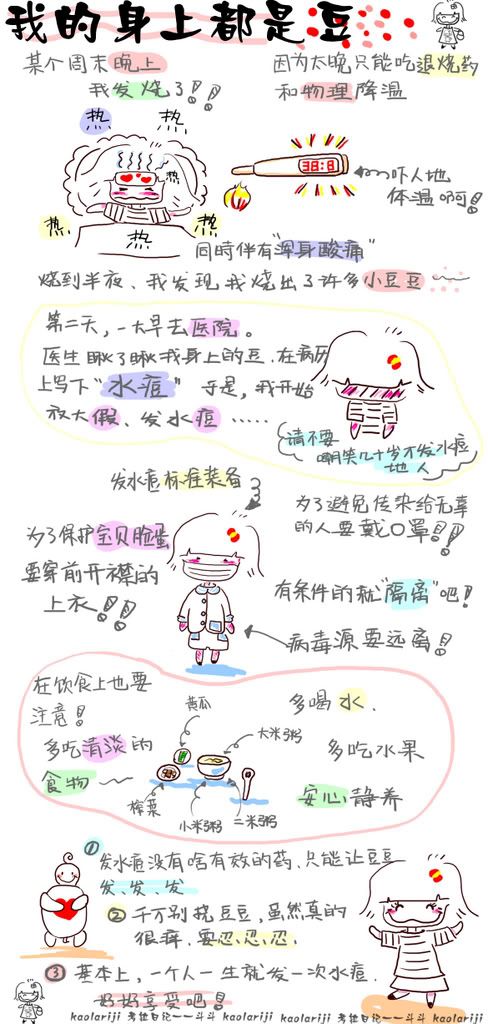 我的身上都是豆
某个周末晚上
我发烧了!!
因为太晚只能吃退烧药
和物理降温
热
热
热
热
热
热
38:8
吓人地
体温啊!
同时伴有"浑身酸痛"
烧到半夜、我发现我烧出了许多小豆豆
第二天,一大早去医院。
医生瞅了瞅我身上的豆.在病历
上写下"水痘" 于是,我开始
放大假、发水痘 ......
请不要
嘲笑几十岁才发水痘
地人
发水痘标准装备
为了保护宝贝脸蛋
要穿前开襟的
上衣!!
为了避免传染给无辜
的人要戴口罩!!
有条件的就"隔离"吧!
病毒源要远离!
在饮食上也要
注意!
多吃清淡的
食物
黄瓜
大米粥
榨菜
小米粥
二米粥
多喝水.
多吃水果
安心静养
① 发水痘没有啥有效的药、只能让豆豆
发、发、发
② 千万别挠豆豆,虽然真的
很痒、要忍、忍、忍.
③ 基本上,一个人一生就发一次水痘.
好好享受吧!
kaolariji 考拉日伦——斗斗 kaolariji kaolariji 考拉日伦——斗斗 kaolariji